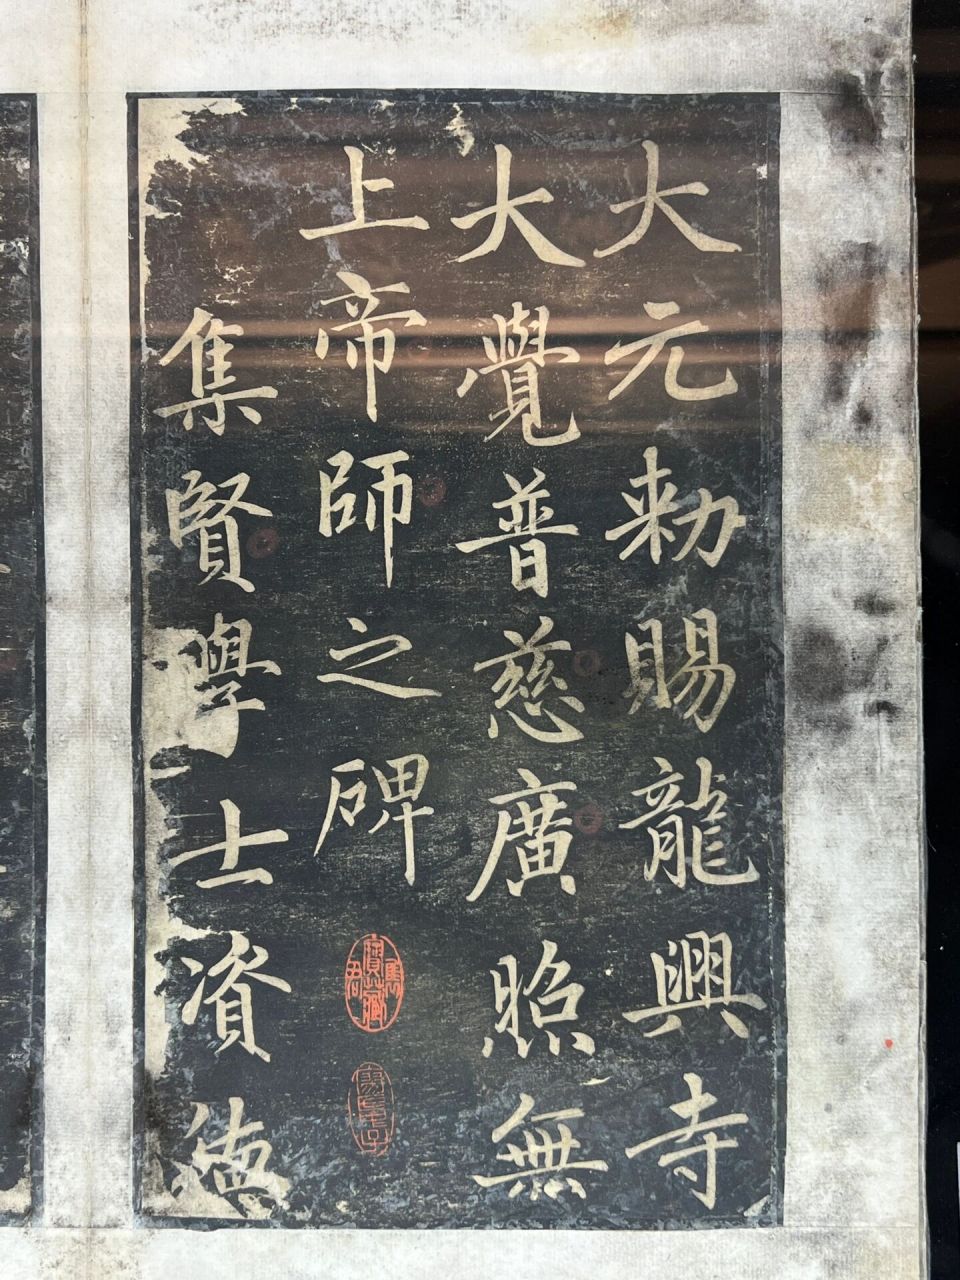 大元勑賜龍興寺
大覺普慈廣照無
上帝師之碑
集賢學士資德